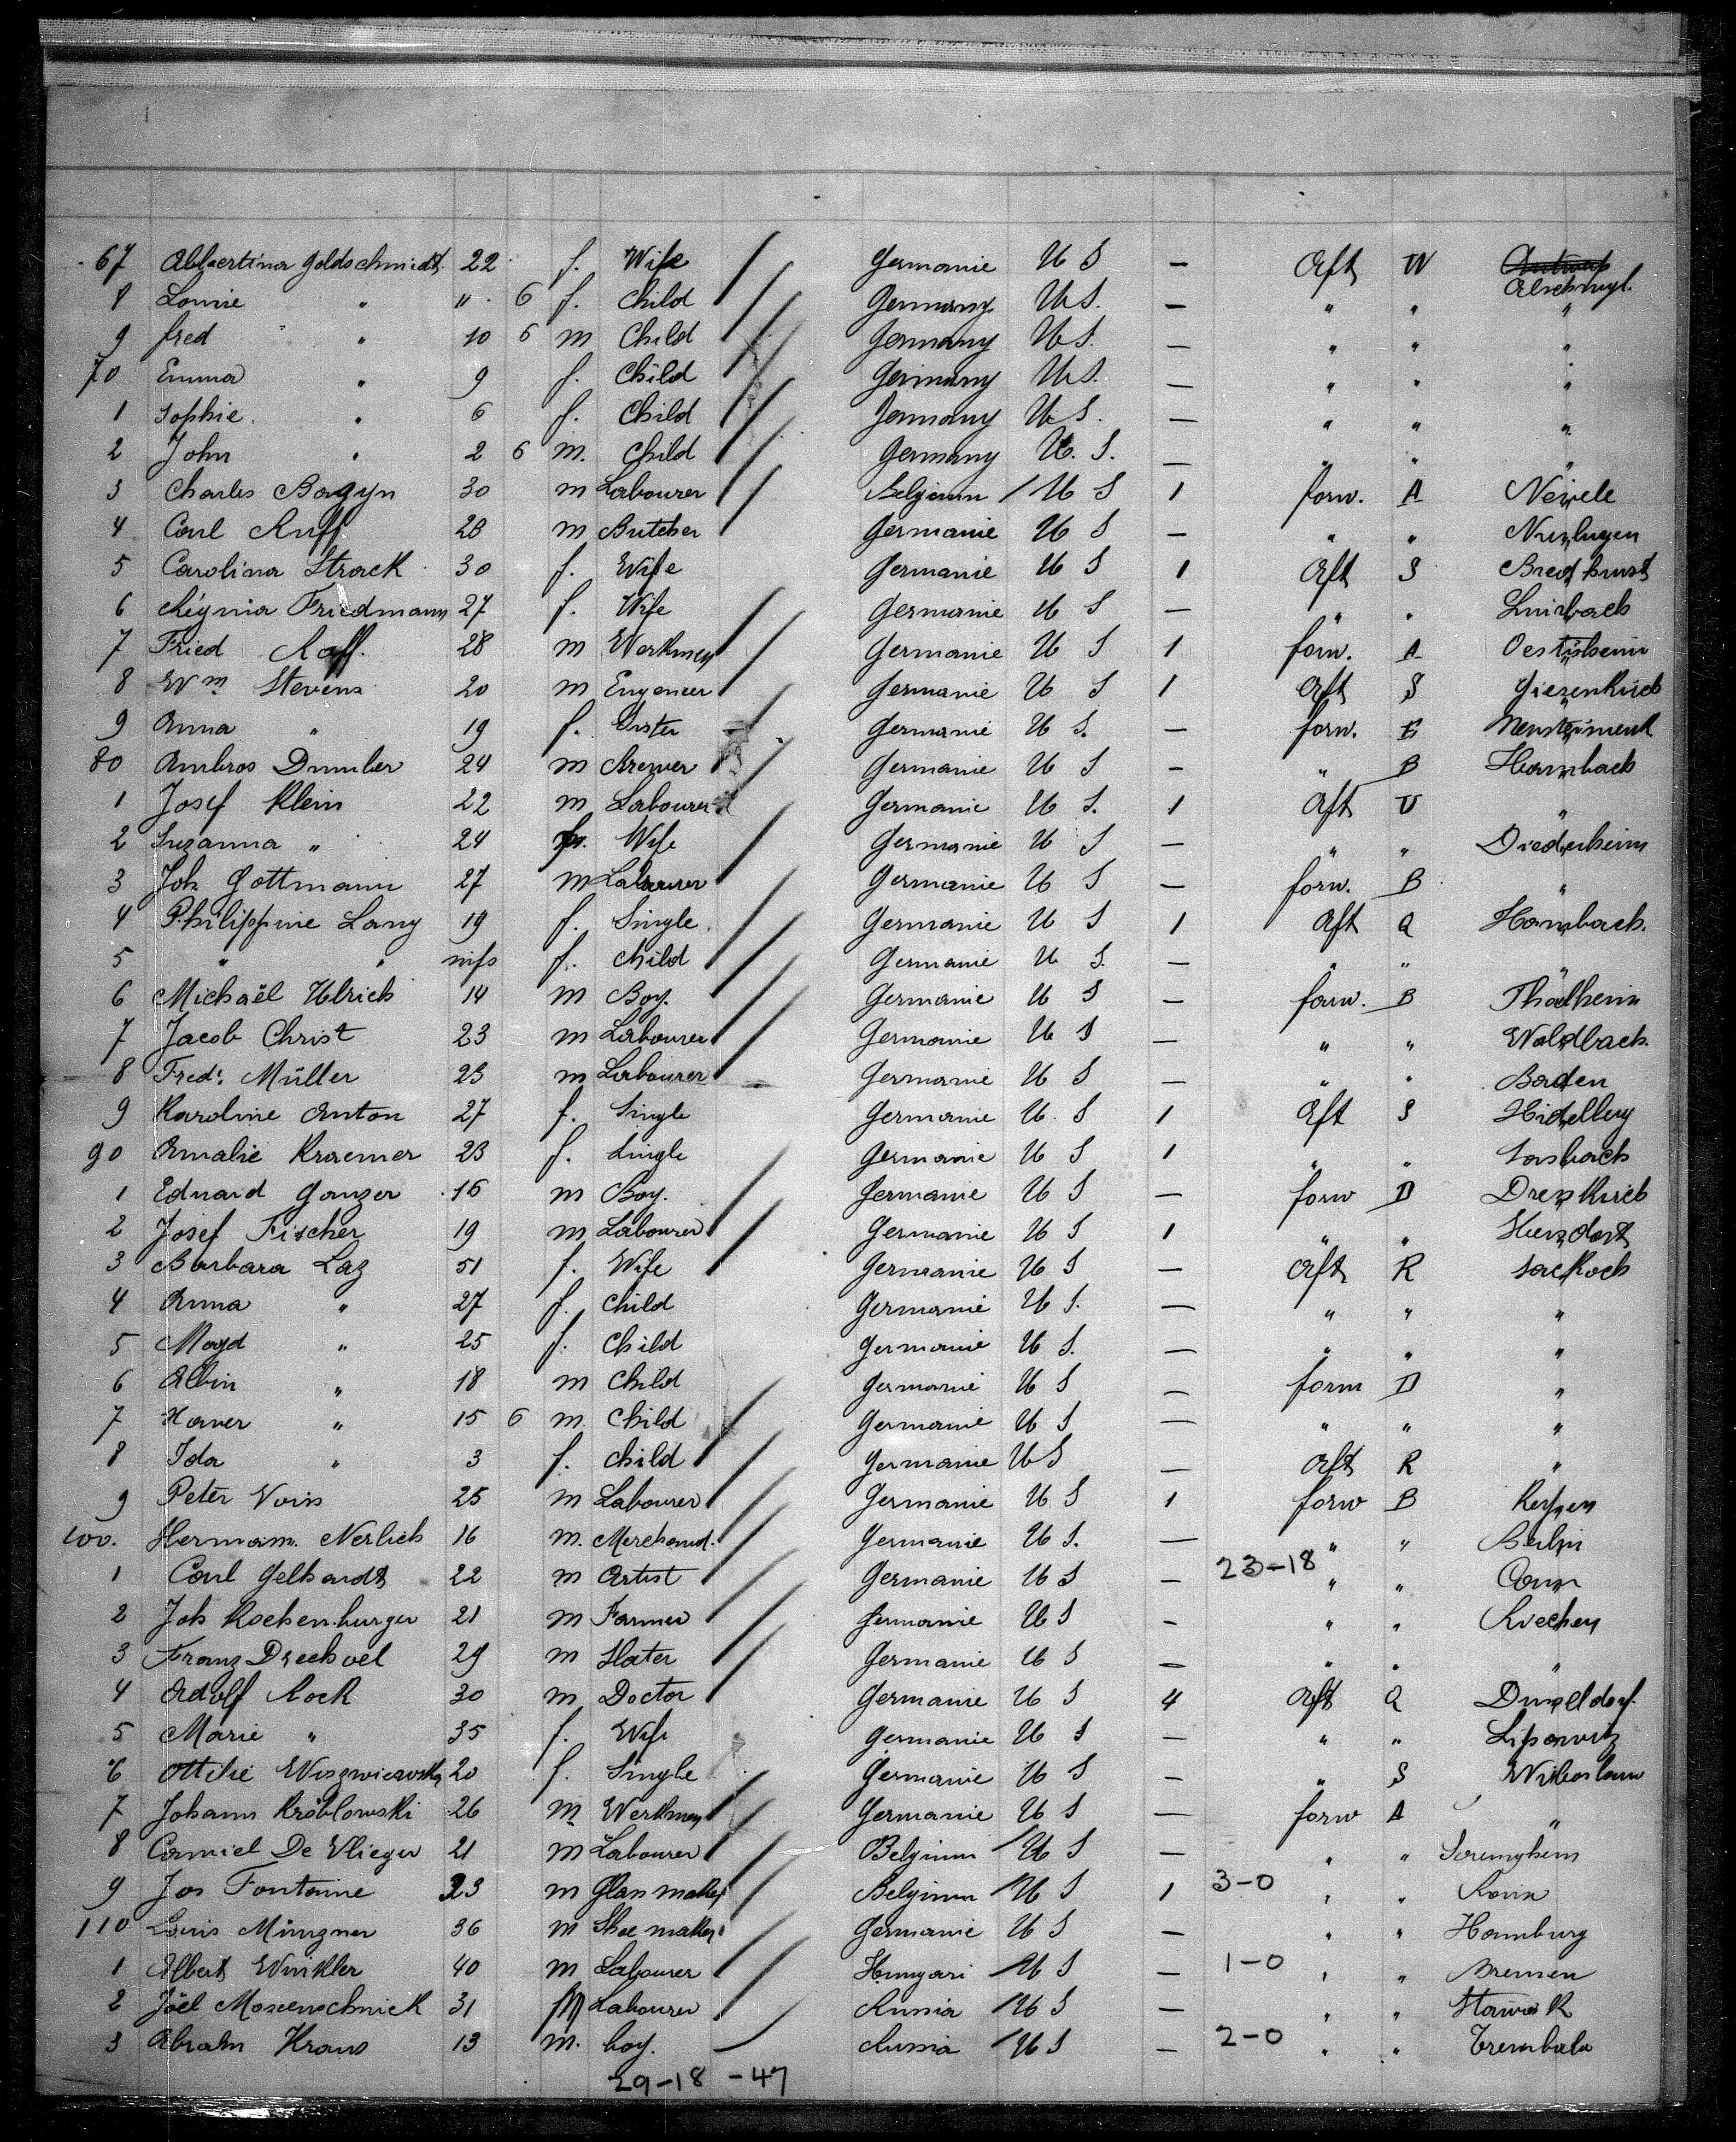 67 Albertina Goldschmidt 22 f. Wife Germanie U S — Aft W Antwerp
8 Louise " 11 6 f. Child Germany U S. — " " "
9 fred " 10 6 m Child Germany U S. — " " "
70 Emma " 9 f. Child Germany U S. — " " "
1 Sophie. " 6 f. Child Germany U S. — " " "
2 John " 2 6 m. Child Germany U. S. — " " "
3 Charles Bagyn 30 m Labourer Belgium / U S 1 forw. A Nevele
4 Carl Ruff 28 m Butcher Germanie U S — " "
5 Carolina Strack 30 f. Wife Germanie U S 1 Aft S
6 Friedmann 27 f. Wife Germanie U S — " "
7 Fried Raff. 28 m Werkmen Germanie U S 1 forw. A
8 Wm Stevens 20 m Engeneer Germanie U S 1 Aft S
9 Anna " 19 f. Sister Germanie U S. — forw. E
80 Ambros Dumler 24 m Brewer Germanie U S — " B Hambach
1 Josef Klein 22 m Labourer Germanie U S. 1 Aft U "
2 Suzanna " 24 f. Wife Germanie U S — " " Diedenheim
3 Joh Gottmann 27 m Labourer Germanie U S — forw. B "
4 Philippine Lang 19 f. Single. Germanie U S 1 Aft Q Hambach.
5 " " f. Child Germanie U S. — " " "
6 Michaël Ulrich 14 m Boy. Germanie U S — forw. B Thalheim
7 Jacob Christ 23 m Labourer Germanie U S — " " Waldbach.
8 Fred. Müller 23 m Labourer Germanie U S — " " Baden
9 Karoline Anton 27 f. Single Germanie U. S 1 Aft S Hidelberg
90 Amalie Kraemer 23 f. Single Germanie U S 1 " " Sasbach
1 Eduard Ganzer 16 m Boy. Germanie U S — forw D
2 Josef Fischer 19 m Labourer Germanie U S 1 " "
3 Barbara Laz 51 f. Wife Germanie U S — Aft R
4 Anna " 27 f. Child Germanie U S. — " " "
5 Magd " 25 f. Child Germanie U S. — " " "
6 Albin " 18 m Child Germanie U S — forw D "
7 Xaver " 15 6 m. Child Germanie U S — " " "
8 Ida " 3 f. Child Germanie U S — Aft R "
9 Peter Voirs 25 m Labourer Germanie U S 1 forw B
100. Hermann. Nerlich 16 m. Merchand. Germanie U S. — " " Berlin
1 Carl Gelhardt 22 m Artist Germanie U S — 23-18 " "
2 Joh Rochenburger 21 m Farmer Germanie U S — " "
3 Franz Drechsel 29 m Slater Germanie U S — " " "
4 Adolf Rock 30 m Doctor Germanie U S 4 Aft Q Dusseldorf.
5 Marie " 35 f. Wife Germanie U S — " "
6 Ottilie 20 f. Single Germanie U S — " S
7 Johann Kröblowski 26 m Werkmen Germanie U S — forw A "
8 Camiel De Vlieger 21 m Labourer Belgium / U S — " "
9 Jos Fontaine 23 m Glas maker Belgium / U S 1 3-0 " "
110 Louis Münzner 36 m Shoe maker Germanie U S — " " Hamburg
1 Albert Winkler 40 m Labourer Hungari / U S — 1-0 " " Bremen
2 Joël 31 m Labourer Russia / U S — " "
3 Abrahm Kraus 13 m. boy. Russia / U S — 2-0 " "
29-18 - 47